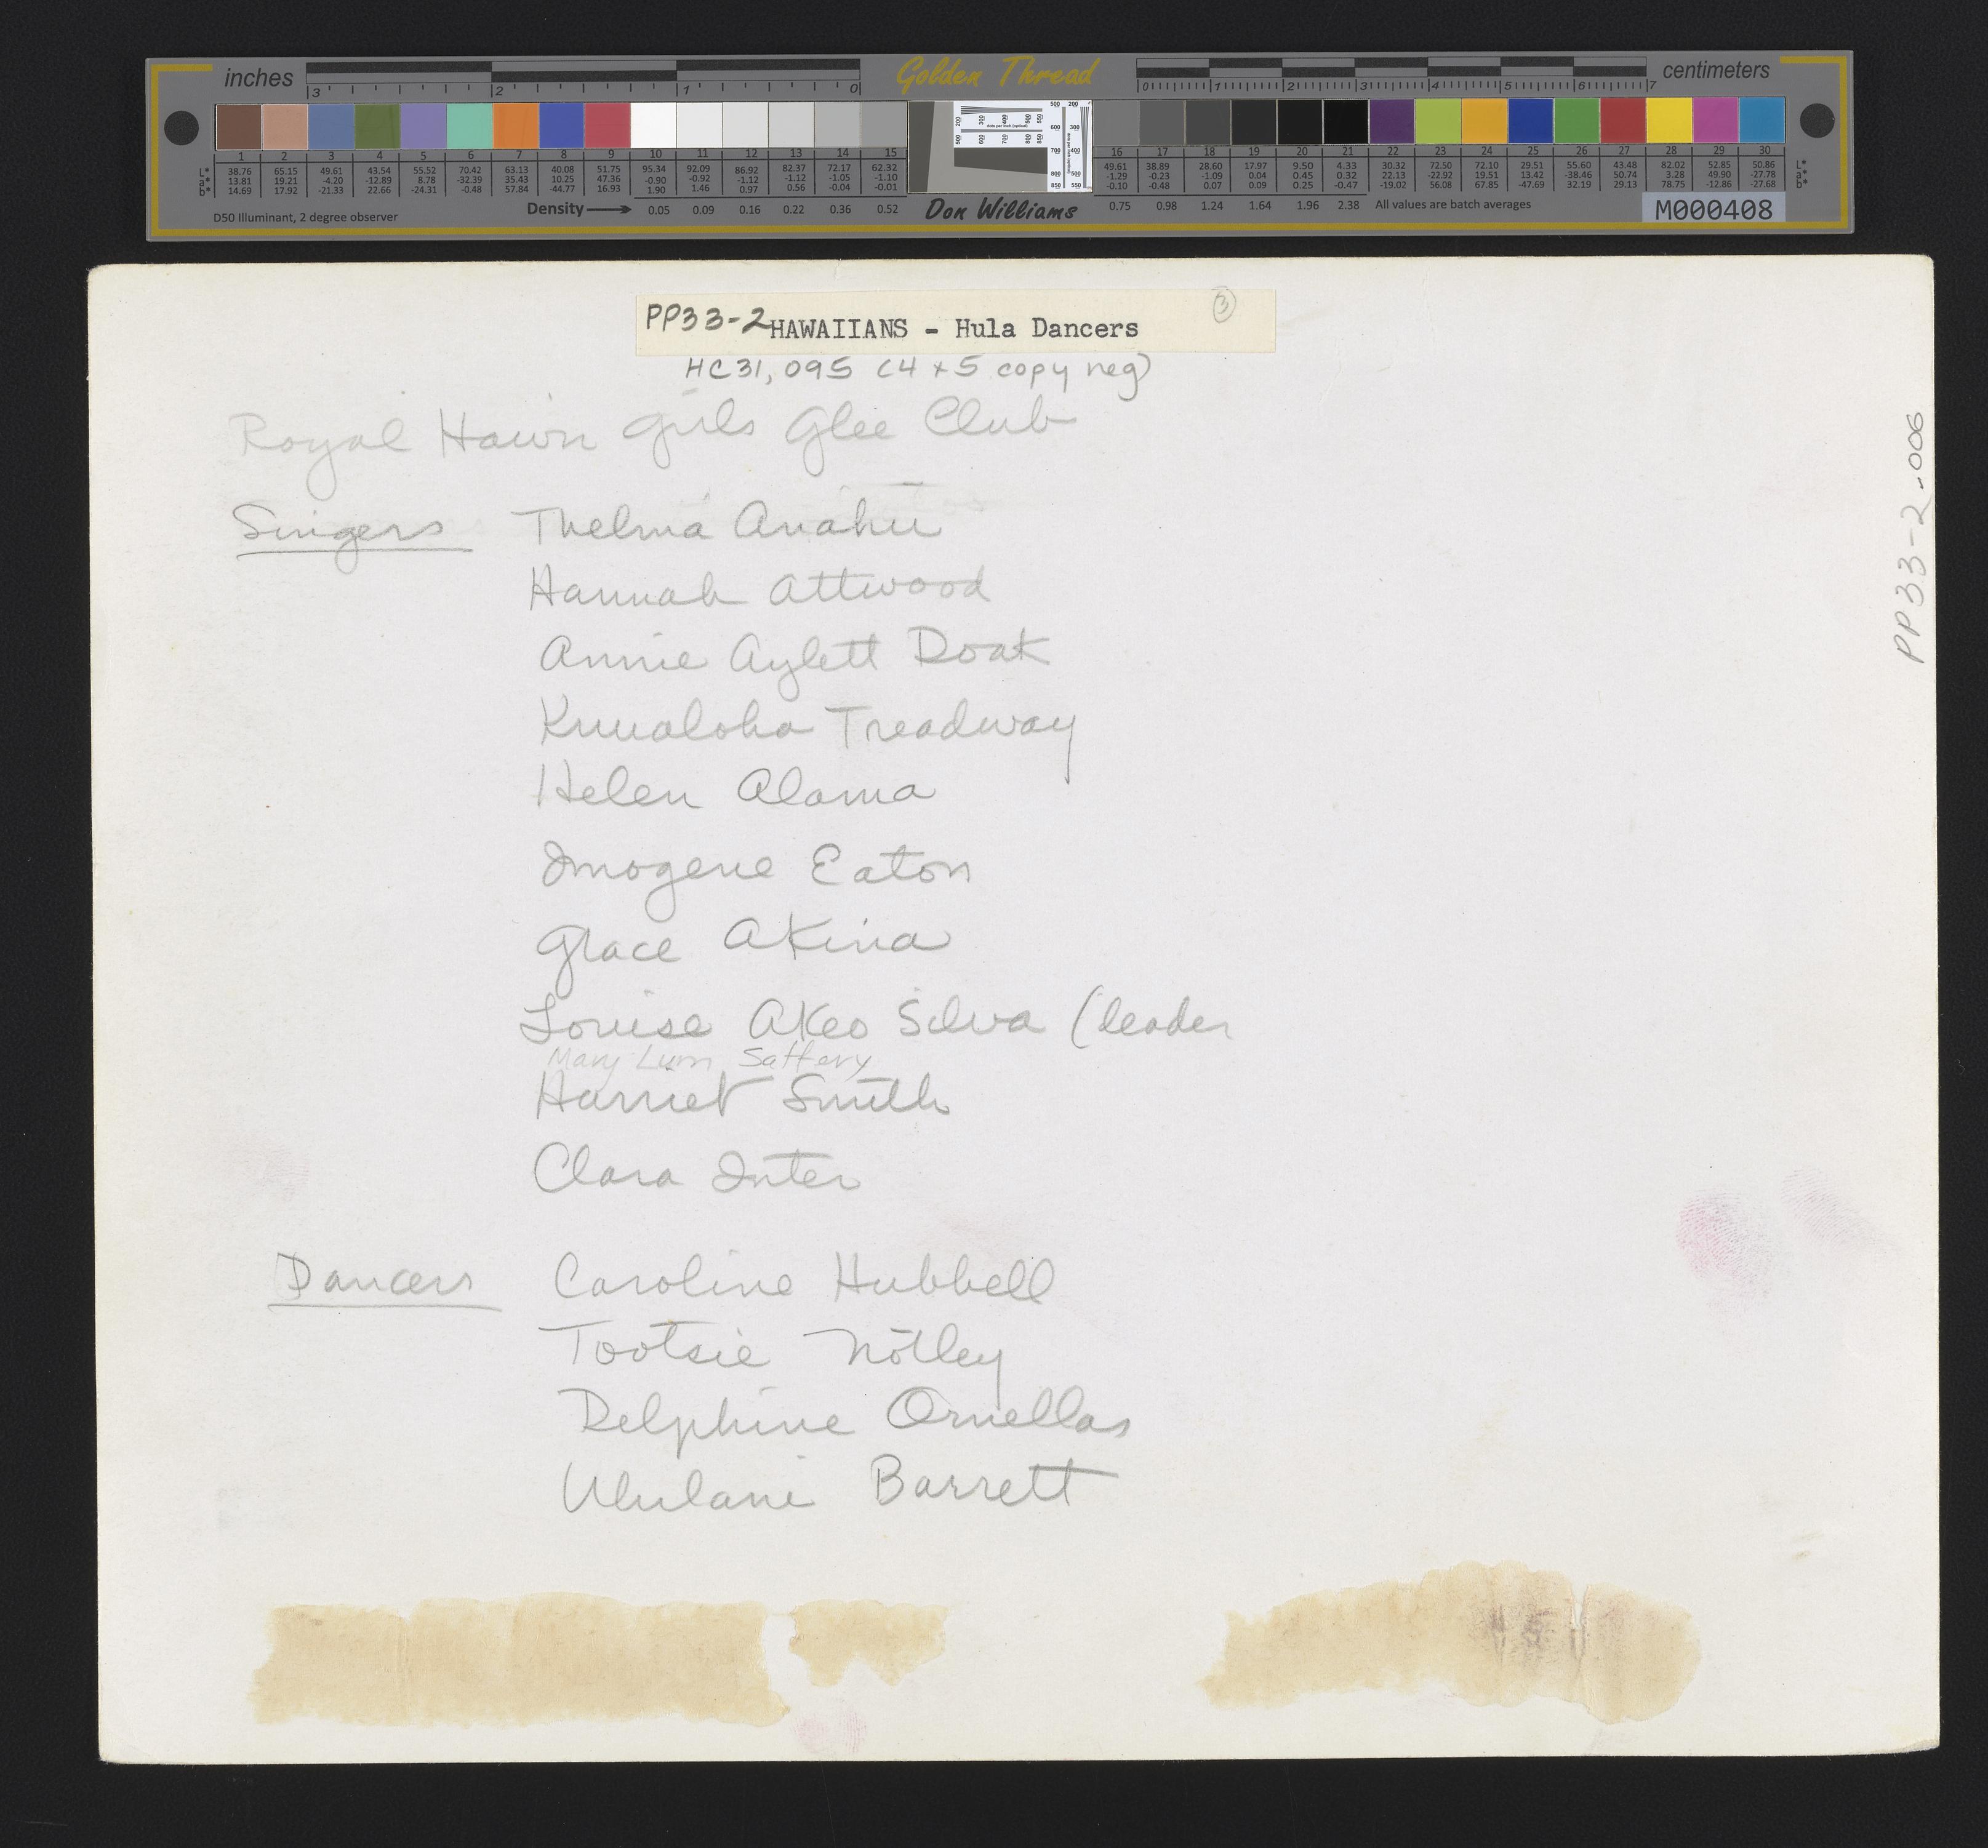 inches Golden Thread centimeters
3 2 1 0 0 1 2 3 4 5 6 7
1 2 3 4 5 6 7 8 9 10 11 12 13 14 15 16 17 18 19 20 21 22 23 24 25 26 27 28 29 30
L* 38.76 65.15 49.61 43.54 55.52 70.42 63.13 40.08 51.75 95.34 92.09 86.92 82.37 72.17 62.32 49.61 38.89 28.60 17.97 9.50 4.33 30.32 72.50 72.10 29.51 55.60 43.48 82.02 52.85 50.86 L*
a* 13.81 19.21 -4.20 -12.89 8.78 -32.39 35.43 10.25 47.36 -0.90 -0.92 -1.12 -1.12 -1.05 -1.10 -1.29 -0.23 -1.09 0.04 0.45 0.32 22.13 -22.92 19.51 13.42 -38.46 50.74 3.28 49.90 -27.78 a*
b* 14.69 17.92 -21.33 22.66 -24.31 -0.48 57.84 -44.77 16.93 1.90 1.46 0.97 0.56 -0.04 -0.01 -0.10 -0.48 0.07 0.09 0.25 -0.47 -19.02 56.08 67.85 -47.69 32.19 29.13 78.75 -12.86 -27.68 b*
D50 Illuminant, 2 degree observer Density 0.05 0.09 0.16 0.22 0.36 0.52 Don Williams 0.75 0.98 1.24 1.64 1.96 2.38 All values are batch averages M000408
PP33-2 HAWAIIANS - Hula Dancers 3
HC31,095 (4x5 copy neg)
Royal Hawn Girls Glee Club
Singers Thelma Anahu
Hannah Attwood
Annie Aylett Doak
Kuualoha Treadway
Helen Alama
Imogene Eaton
Grace Akina
Louise Akeo Silva (leader
Mary Lum Saffery
Harriet Smith
Clara Inter
Dancers Caroline Hubbell
Tootsie Notley
Delphine Ornellas
Ululani Barrett
PP33-2-006